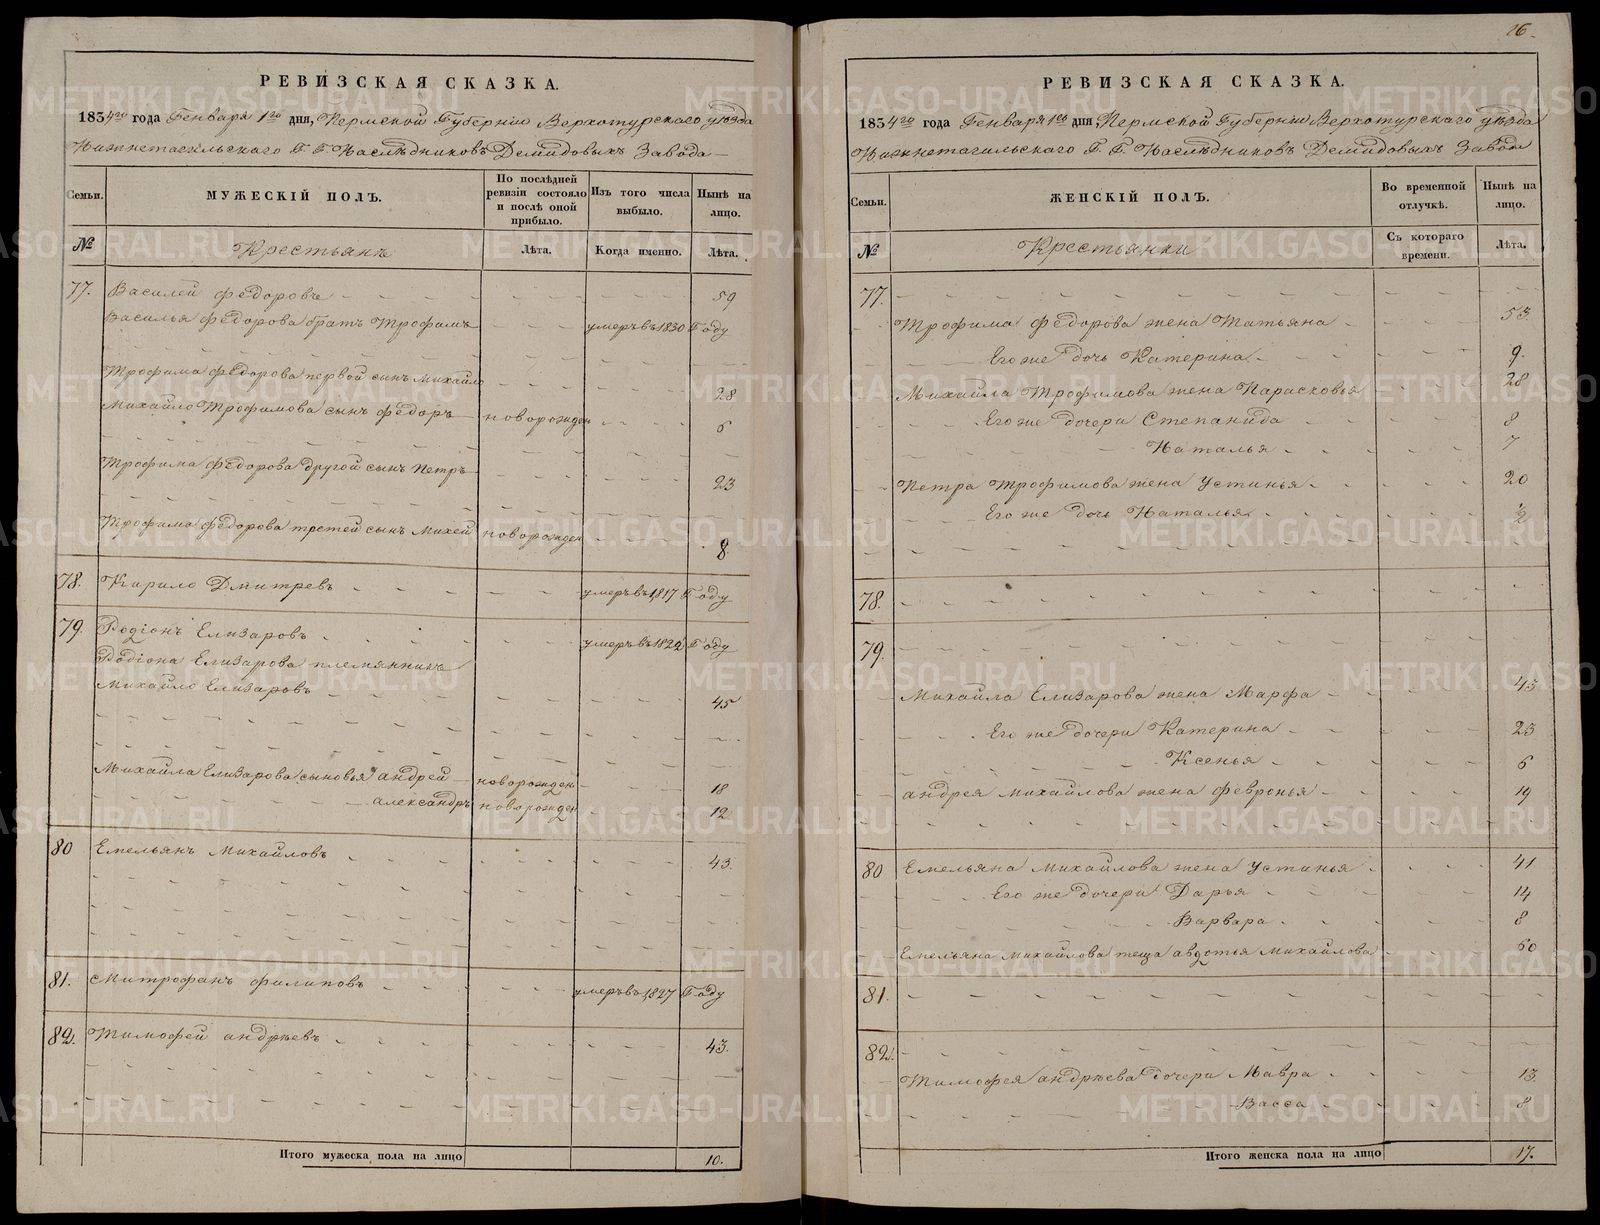 РЕВИЗСКАЯ СКАЗКА.
1834го года Генваря 1го дня, Пермской Губернiи Верхотурскаго уѣзда
Нижнетагильскаго Г. Г. Наслѣдниковъ Демидовыхъ Завода
Семьи. МУЖЕСКIЙ ПОЛЪ. По послѣдней ревизiи состояло и послѣ оной прибыло. Изъ того числа выбыло. Нынѣ на лицо.
№ Крестьянъ Лѣта. Когда именно. Лѣта.
77. Василей Федоровъ 59
Василья Федорова братъ Трофимъ умеръ въ 1830 Году
Трофима Федорова первой сынъ Михайло 28
Михайло Трофимова сынъ Федоръ новорожден 6
Трофима Федорова другой сынъ Петръ 23
Трофима Федорова третей сынъ Михей новорожден 8.
78. Карило Дмитревъ умеръ въ 1817 Году
79. Родiонъ Елизаровъ умеръ въ 1822 Году
Родiона Елизарова племянникъ
Михайло Елизаровъ 45
Михайла Елизарова сыновья андрей новорожден 18
александръ новорожден 12
80 Емельянъ Михайловъ 43.
81. Митрофанъ Филиповъ умеръ въ 1827 Году
82. Тимофей андрѣевъ 43.
Итого мужеска пола на лицо 10.
16.
РЕВИЗСКАЯ СКАЗКА.
1834го года Генваря 1го дня Пермской Губернiи Верхотурскаго уѣзда
Нижнетагильскаго Г. Г. Наслѣдниковъ Демидовыхъ Завода
Семьи. ЖЕНСКIЙ ПОЛЪ. Во временной отлучкѣ. Нынѣ на лицо.
№ Крестьянки Съ котораго времени. Лѣта.
77.
Трофима Федорова жена Татьяна 53.
Его же дочь Катерина 9.
Михайла Трофимова жена Парасковья 28
Его же дочери Степанида 8
Наталья 7
Петра Трофимова жена Устинья 20
Его же дочь Наталья 1/2
78.
79.
Михайла Елизарова жена Марфа 45
Его же дочери Катерина 23
Ксенья 6
андрея Михайлова жена Февронья 19
80 Емельяна Михайлова жена Устинья 41
Его же дочери Дарья 14
Варвара 8
Емельяна Михайлова теща авдотья Михайлова 60
81.
82.
Тимофея андрѣева дочери Мавра 13.
Васса 8
Итого женска пола на лицо 17.
METRIKI.GASO-URAL.RU